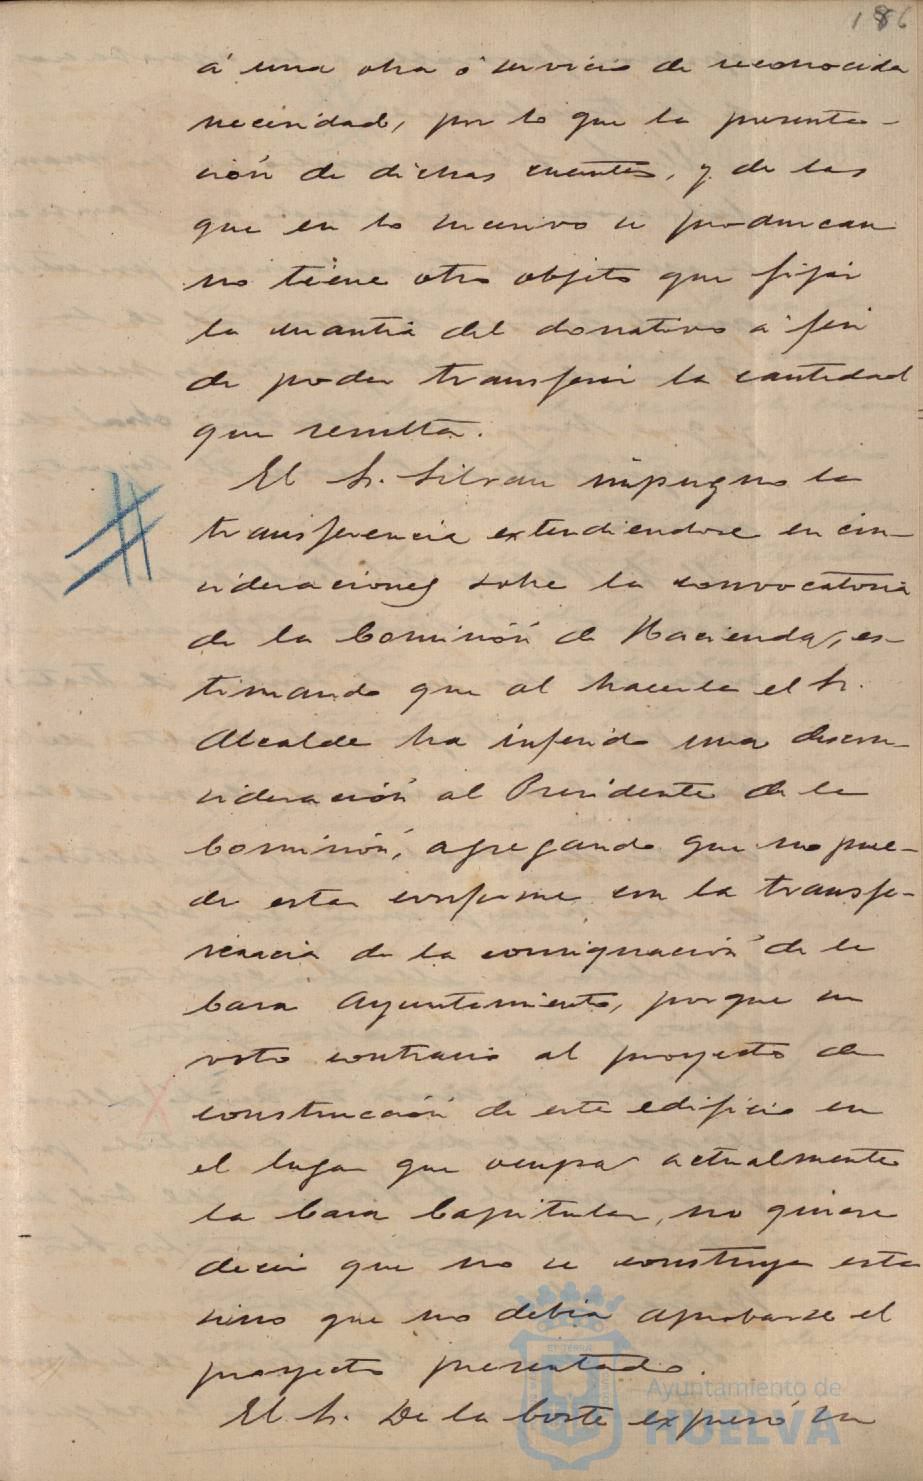 186
á una obra ó servicio de reconocida
necesidad, por lo que la presenta-
ción de dichas cuentas, y de las
que en lo sucesivo se produzcan
no tiene otro objeto que fijar
la cuantia del donativo á fin
de poder transferir la cantidad
que resulta.
El Sr. Silvan impugno la
transferencia extendiendose en con-
sideraciones sobre la convocatoria
de la Comisión de Hacienda, es-
timando que al hacerla el Sr.
Alcalde ha inferido una descon-
sideración al Presidente de la
Comisión, agregando que no pue-
de estar conforme con la transfe-
rencia de la consignación de la
Casa Ayuntamiento, porque su
voto contrario al proyecto de
construcción de este edificio en
el lugar que ocupa actualmente
la Casa Capitular, no quiere
decir que no se construya esta
sino que no debia aprobarse el
proyecto presentado.
El Sr. De la Corte expresó su
Ayuntamiento de
HUELVA